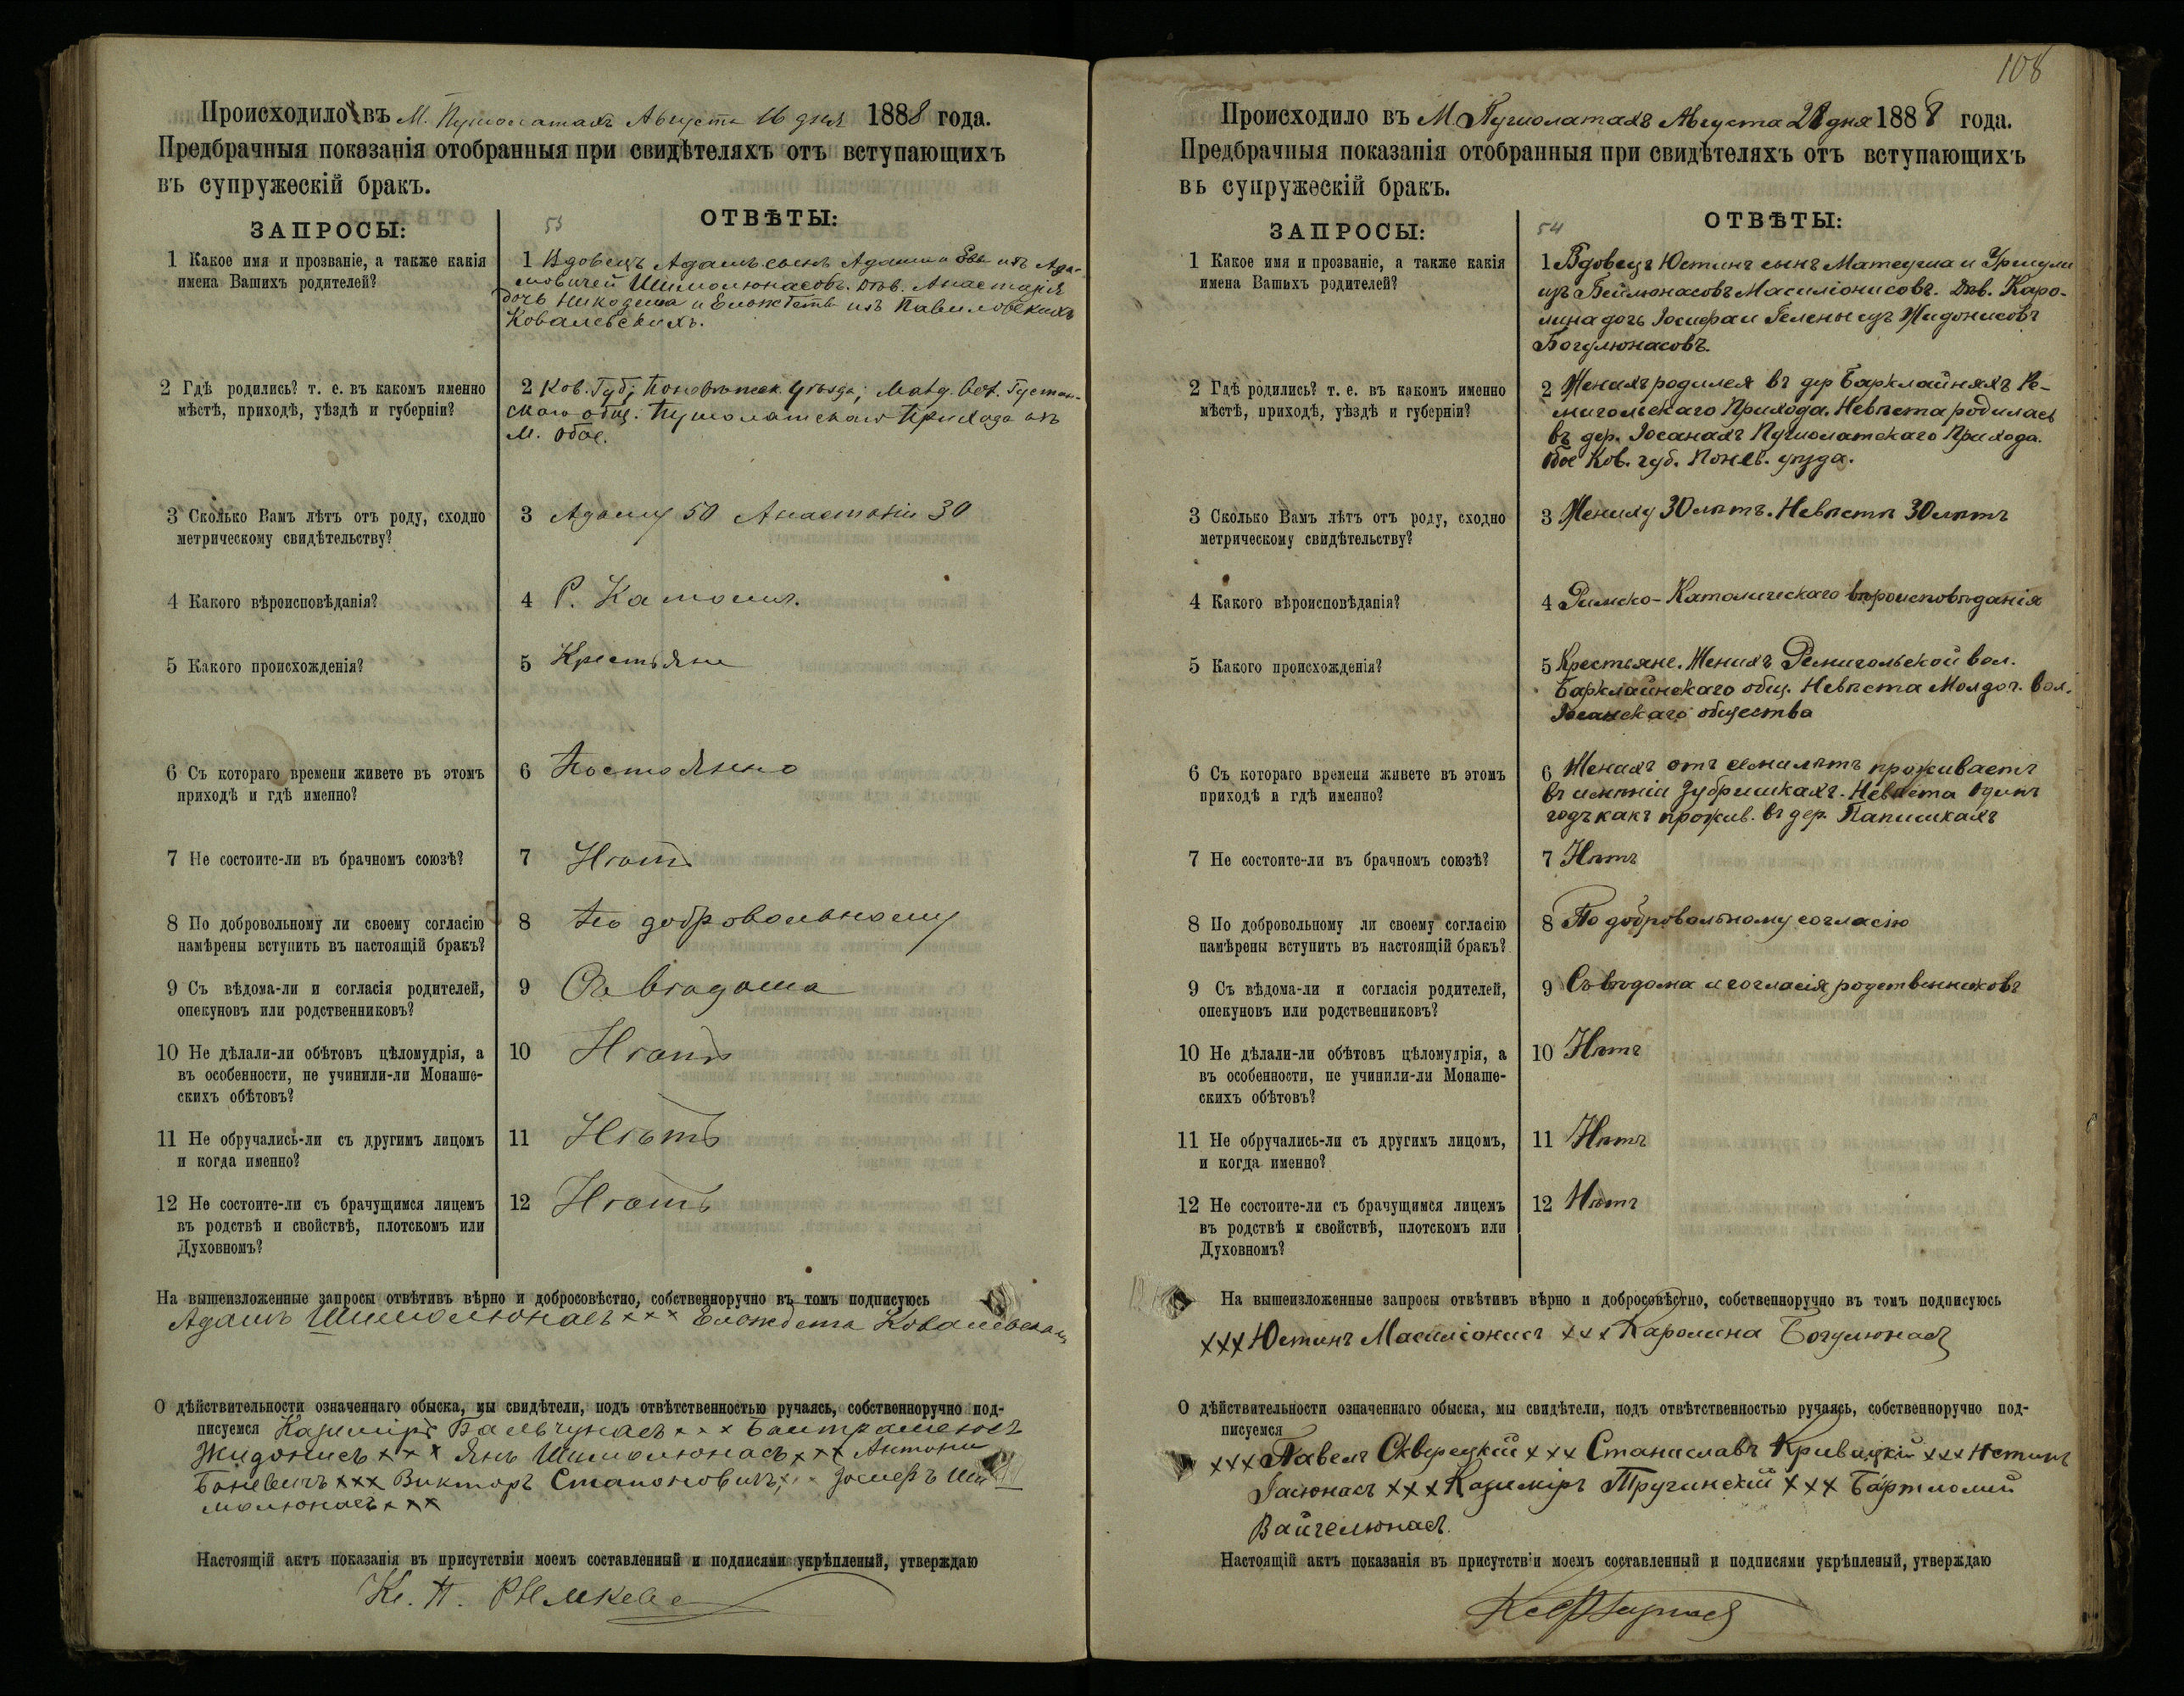 Происходило въ М. Пушолатахъ Августа 16 дня 1888 года.
Предбрачныя показанія отобранныя при свидѣтеляхъ отъ вступающихъ
въ супружескій бракъ.
53
ЗАПРОСЫ:
ОТВѢТЫ:
1 Какое имя и прозваніе, а также какія
имена Вашихъ родителей?
1 Вдовецъ Адамъ сынъ Адама и Евы изъ Ада-
мовичей Шимолюнасовъ. Дѣв. Анастазія
дочь Никодема и Елжбеты изъ Павиловскихъ
Ковалевскихъ.
2 Гдѣ родились? т. е. въ какомъ именно
мѣстѣ, приходѣ, уѣздѣ и губерніи?
2 Ков. Губ; Поневѣжск. Уѣзда;
скаго общ. Пушолатскаго Прихода
М. Обое.
3 Сколько Вамъ лѣтъ отъ роду, сходно
метрическому свидѣтельству?
3 Адаму 50 Анастазіи 30
4 Какого вѣроисповѣданія?
4 Р. Католич.
5 Какого происхожденія?
5 Крестьяне
6 Съ котораго времени живете въ этомъ
приходѣ и гдѣ именно?
6 Постоянно
7 Не состоите-ли въ брачномъ союзѣ?
7 Нѣтъ
8 По добровольному ли своему согласію
намѣрены вступить въ настоящій бракъ?
8 По добровольному
9 Съ вѣдома-ли и согласія родителей,
опекуновъ или родственниковъ?
9 Съ вѣдома
10 Не дѣлали-ли обѣтовъ цѣломудрія, а
въ особенности, не учинили-ли Монаше-
скихъ обѣтовъ?
10 Нѣтъ
11 Не обручались-ли съ другимъ лицомъ
и когда именно?
11 Нѣтъ
12 Не состоите-ли съ брачущимся лицемъ
въ родствѣ и свойствѣ, плотскомъ или
Духовномъ?
12 Нѣтъ
На вышеизложенные запросы отвѣтивъ вѣрно и добросовѣстно, собственноручно въ томъ подписуюсь
Адамъ Шимолюнасъ xxx Елжбета Ковалевская
О дѣйствительности означеннаго обыска, мы свидѣтели, подъ отвѣтственностью ручаясь, собственноручно под-
писуемся Казиміръ Бальчунасъ xxx
Жидонисъ xxx Янъ Шимолюнасъ xxx Антони
Баневичъ xxx Викторъ Стапоновичъ Іосифъ Ши
молюнасъ xxx
Настоящій актъ показанія въ присутствіи моемъ составленный и подписями укрѣпленый, утверждаю
Кс. П.
108
Происходило въ М. Пушолатахъ Августа 28 дня 1888 года.
Предбрачныя показанія отобранныя при свидѣтеляхъ отъ вступающихъ
въ супружескій бракъ.
54
ЗАПРОСЫ:
ОТВѢТЫ:
1 Какое имя и прозваніе, а также какія
имена Вашихъ родителей?
1 Вдовецъ Юстинъ сынъ Матеуша и Уршули
изъ Бейлюнасовъ Масиліонисовъ. Дѣв. Каро-
лина дочь Іосифа и Гелены изъ Жидонисовъ
Богулюнасовъ.
2 Гдѣ родились? т. е. въ какомъ именно
мѣстѣ, приходѣ, уѣздѣ и губерніи?
2 Женихъ родился въ дер Барклайняхъ Ре-
мигольскаго Прихода. Невѣста родилась
въ дер. Іосанахъ Пушолатскаго Прихода.
Обое Ков. губ. Понев. уѣзда.
3 Сколько Вамъ лѣтъ отъ роду, сходно
метрическому свидѣтельству?
3 Жениху 30 лѣтъ. Невѣстѣ 30 лѣтъ
4 Какого вѣроисповѣданія?
4 Римско-Католическаго вѣроисповѣданія
5 Какого происхожденія?
5 Крестьяне. Женихъ Ремигольской вол.
Барклайнскаго общ. Невѣста Молдоч. вол.
Іосанскаго общества
6 Съ котораго времени живете въ этомъ
приходѣ и гдѣ именно?
6 Женихъ отъ семи лѣтъ проживаетъ
въ имѣніи Зубришкахъ. Невѣста одинъ
годъ какъ прожив. въ дер. Папишкахъ
7 Не состоите-ли въ брачномъ союзѣ?
7 Нѣтъ
8 По добровольному ли своему согласію
намѣрены вступить въ настоящій бракъ?
8 По добровольному согласію
9 Съ вѣдома-ли и согласія родителей,
опекуновъ или родственниковъ?
9 Съ вѣдома и согласія родственниковъ
10 Не дѣлали-ли обѣтовъ цѣломудрія, а
въ особенности, не учинили-ли Монаше-
скихъ обѣтовъ?
10 Нѣтъ
11 Не обручались-ли съ другимъ лицомъ,
и когда именно?
11 Нѣтъ
12 Не состоите-ли съ брачущимся лицемъ
въ родствѣ и свойствѣ, плотскомъ или
Духовномъ?
12 Нѣтъ
На вышеизложенные запросы отвѣтивъ вѣрно и добросовѣстно, собственноручно въ томъ подписуюсь
xxx Юстинъ Масиліонисъ xxx Каролина Богулюнасъ
О дѣйствительности означеннаго обыска, мы свидѣтели, подъ отвѣтственностью ручаясь, собственноручно под-
писуемся
xxx Павелъ Сквурецкій xxx Станиславъ Кривицкій xxx Юстинъ
Гасюнасъ xxx Казиміръ Тручинскій xxx Бартломій
Вайчелюнасъ.
Настоящій актъ показанія въ присутствіи моемъ составленный и подписями укрѣпленый, утверждаю